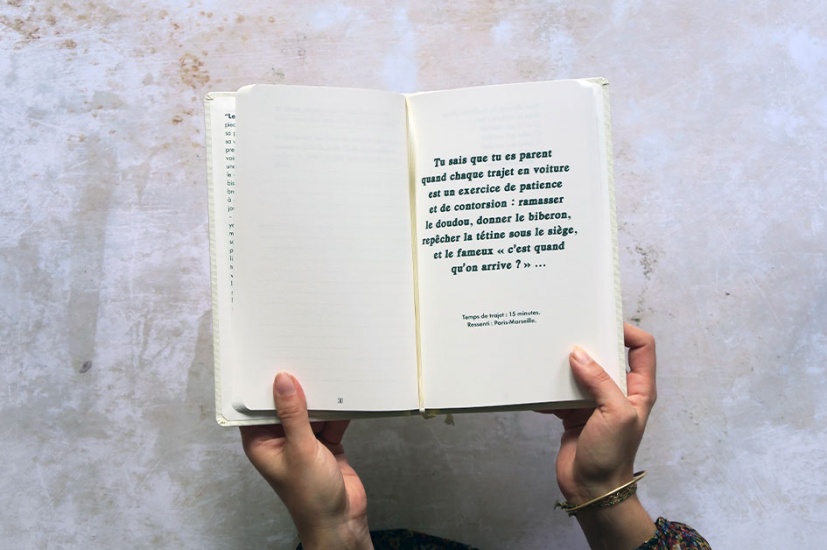 "Le
Tu sais que tu es parent
quand chaque trajet en voiture
est un exercice de patience
et de contorsion : ramasser
le doudou, donner le biberon,
repêcher la tétine sous le siège,
et le fameux « c'est quand
qu'on arrive ? » ...
Temps de trajet : 15 minutes.
Ressenti : Paris-Marseille.